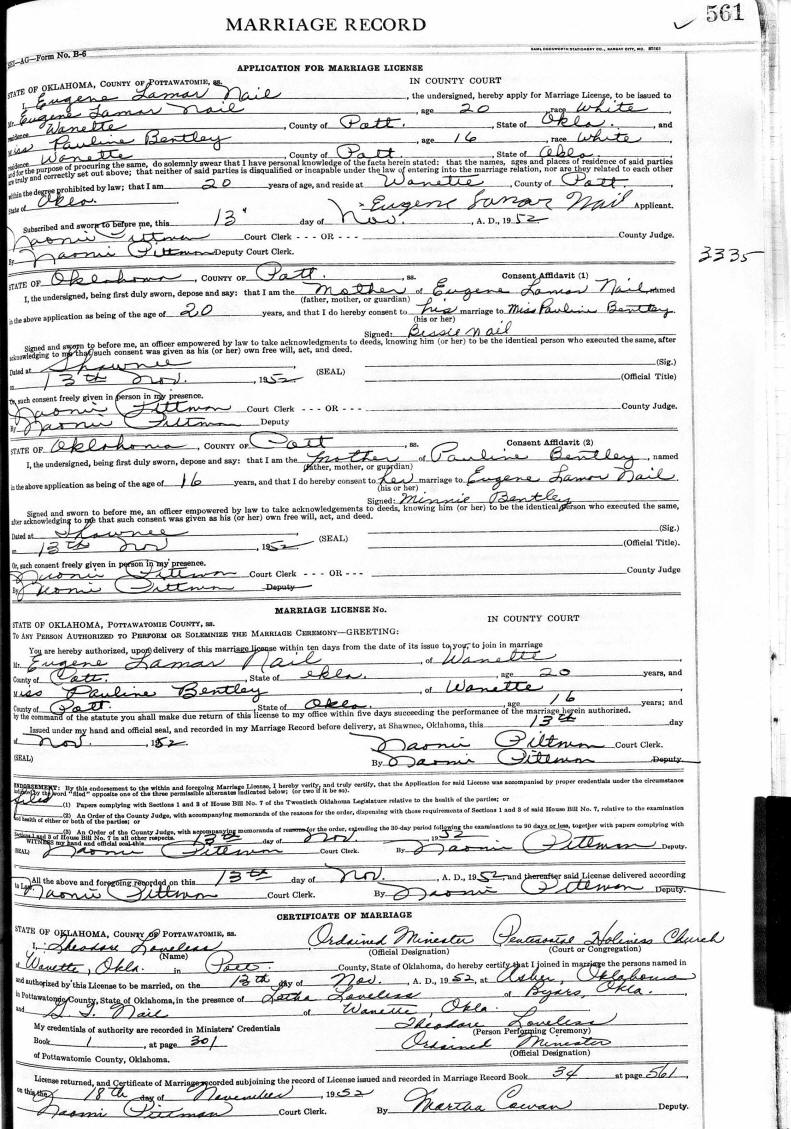 MARRIAGE RECORD
561
AG—Form No. B-6
APPLICATION FOR MARRIAGE LICENSE
STATE OF OKLAHOMA, COUNTY OF POTTAWATOMIE, ss. IN COUNTY COURT
I, Eugene Lamar Nail, the undersigned, hereby apply for Marriage License, to be issued to
Mr. Eugene Lamar Nail, age 20 race White
residence Wanette, County of Pott., State of Okla., and
Miss Pauline Bentley, age 16, race White
residence Wanette, County of Pott, State of Okla.
and for the purpose of procuring the same, do solemnly swear that I have personal knowledge of the facts herein stated: that the names, ages and places of residence of said parties
are truly and correctly set out above; that neither of said parties is disqualified or incapable under the law of entering into the marriage relation, nor are they related to each other
within the degree prohibited by law; that I am 20 years of age, and reside at Wanette, County of Pott.
State of Okla.
Eugene Lamar Nail Applicant.
Subscribed and sworn to before me, this 13 day of Nov., A. D., 1952
Naomi Pittman Court Clerk - - OR - - - County Judge.
By Naomi Pittman Deputy Court Clerk.
3335
STATE OF Oklahoma, COUNTY OF Pott., ss. Consent Affidavit (1)
I, the undersigned, being first duly sworn, depose and say: that I am the Mother of Eugene Lamar Nail, named
(father, mother, or guardian)
in the above application as being of the age of 20 years, and that I do hereby consent to his marriage to Miss Pauline Bentley
(his or her)
Signed: Bessie Nail
Signed and sworn to before me, an officer empowered by law to take acknowledgments to deeds, knowing him (or her) to be the identical person who executed the same, after
acknowledging to me that such consent was given as his (or her) own free will, act, and deed.
Dated at Shawnee (SEAL) (Sig.)
13th Nov., 1952 (Official Title)
Or, such consent freely given in person in my presence.
Naomi Pittman Court Clerk - - - OR - - - County Judge.
By Naomi Pittman Deputy
STATE OF Oklahoma, COUNTY OF Pott, ss. Consent Affidavit (2)
I, the undersigned, being first duly sworn, depose and say: that I am the Mother of Pauline Bentley, named
(father, mother, or guardian)
in the above application as being of the age of 16 years, and that I do hereby consent to her marriage to Eugene Lamar Nail
(his or her)
Signed: Minnie Bentley
Signed and sworn to before me, an officer empowered by law to take acknowledgements to deeds, knowing him (or her) to be the identical person who executed the same,
after acknowledging to me that such consent was given as his (or her) own free will, act, and deed.
Dated at Shawnee (SEAL) (Sig.)
13th Nov, 1952 (Official Title).
Or, such consent freely given in person in my presence.
Naomi Pittman Court Clerk - - - OR - - - County Judge
By Naomi Pittman Deputy
MARRIAGE LICENSE No.
STATE OF OKLAHOMA, POTTAWATOMIE COUNTY, ss. IN COUNTY COURT
TO ANY PERSON AUTHORIZED TO PERFORM OR SOLEMNIZE THE MARRIAGE CEREMONY—GREETING:
You are hereby authorized, upon delivery of this marriage license within ten days from the date of its issue to you, to join in marriage
Mr. Eugene Lamar Nail, of Wanette,
County of Pott., State of Okla., age 20 years, and
Miss Pauline Bentley, of Wanette,
County of Pott., State of Okla., age 16 years; and
by the command of the statute you shall make due return of this license to my office within five days succeeding the performance of the marriage herein authorized.
Issued under my hand and official seal, and recorded in my Marriage Record before delivery, at Shawnee, Oklahoma, this 13th day
of Nov., 1952. Naomi Pittman Court Clerk.
(SEAL) By Naomi Pittman Deputy
ENDORSEMENT: By this endorsement to the within and foregoing Marriage License, I hereby verify, and truly certify, that the Application for said License was accompanied by proper credentials under the circumstance
by the word "filed" opposite one of the three permissible alternates indicated below; (or two if it be so).
filed (1) Papers complying with Sections 1 and 3 of House Bill No. 7 of the Twentieth Oklahoma Legislature relative to the health of the parties; or
(2) An Order of the County Judge, with accompanying memoranda of the reasons for the order, dispensing with those requirements of Sections 1 and 3 of said House Bill No. 7, relative to the examination
and health of either or both of the parties; or
(3) An Order of the County Judge, with accompanying memoranda of reasons for the order, extending the 30-day period following the examinations to 90 days or less, together with papers complying with
Sections 1 and 3 of House Bill No. 7 in all other respects.
WITNESS my hand and official seal this 13th day of Nov., 1952
SEAL) Naomi Pittman Court Clerk. By Naomi Pittman Deputy.
All the above and foregoing recorded on this 13th day of Nov., A. D., 1952, and thereafter said License delivered according
to Law. Naomi Pittman Court Clerk. By Naomi Pittman Deputy.
CERTIFICATE OF MARRIAGE
STATE OF OKLAHOMA, COUNTY OF POTTAWATOMIE, ss.
I, Theodore Loveless Ordained Minester Pentecostal Holiness Church
(Name) (Official Designation) (Court or Congregation)
of Wanette, Okla. in Pott. County, State of Oklahoma, do hereby certify that I joined in marriage the persons named in
and authorized by this License to be married, on the 13th day of Nov., A. D., 1952, at Asher, Oklahoma
in Pottawatomie County, State of Oklahoma, in the presence of Letha Loveless of Byars, Okla.
and Nail of Wanette, Okla.
My credentials of authority are recorded in Ministers' Credentials Theodore Loveless
(Person Performing Ceremony)
Book 1, at page 301 Ordained Minester
of Pottawatomie County, Oklahoma. (Official Designation)
License returned, and Certificate of Marriage recorded subjoining the record of License issued and recorded in Marriage Record Book 34 at page 561,
on this the 18th day of November, 1952
Naomi Pittman Court Clerk. By Martha Cowan Deputy.